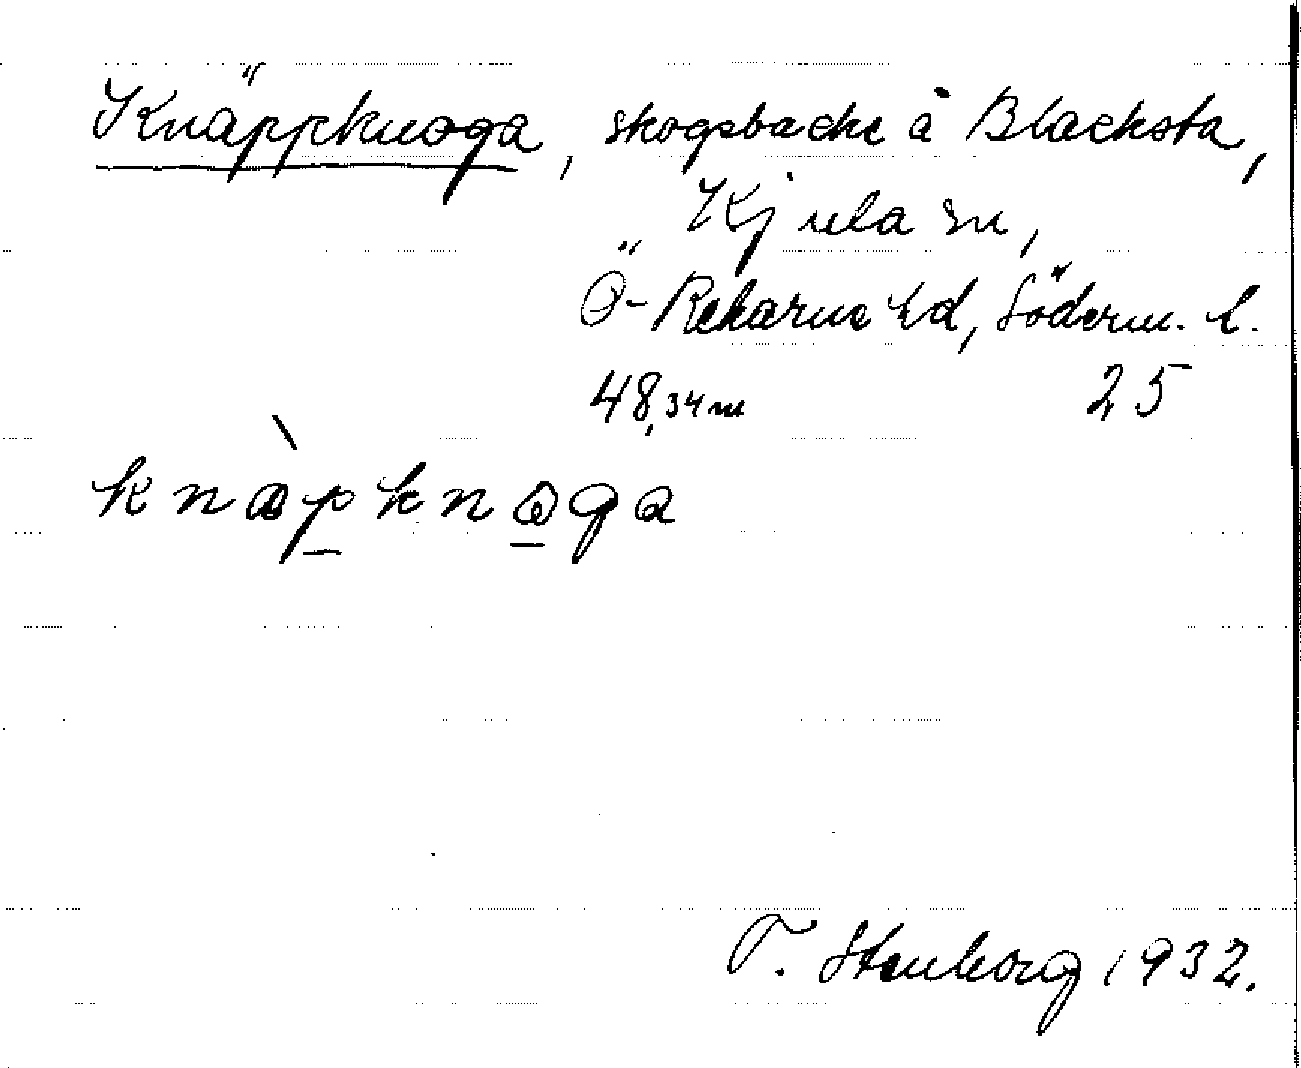 Knäppknoga, skogsbacke å Blacksta,
Kjula sn,
Ö-Rekarne hd, Söderm. l.
48,34 m 25
T. Stenborg 1932.